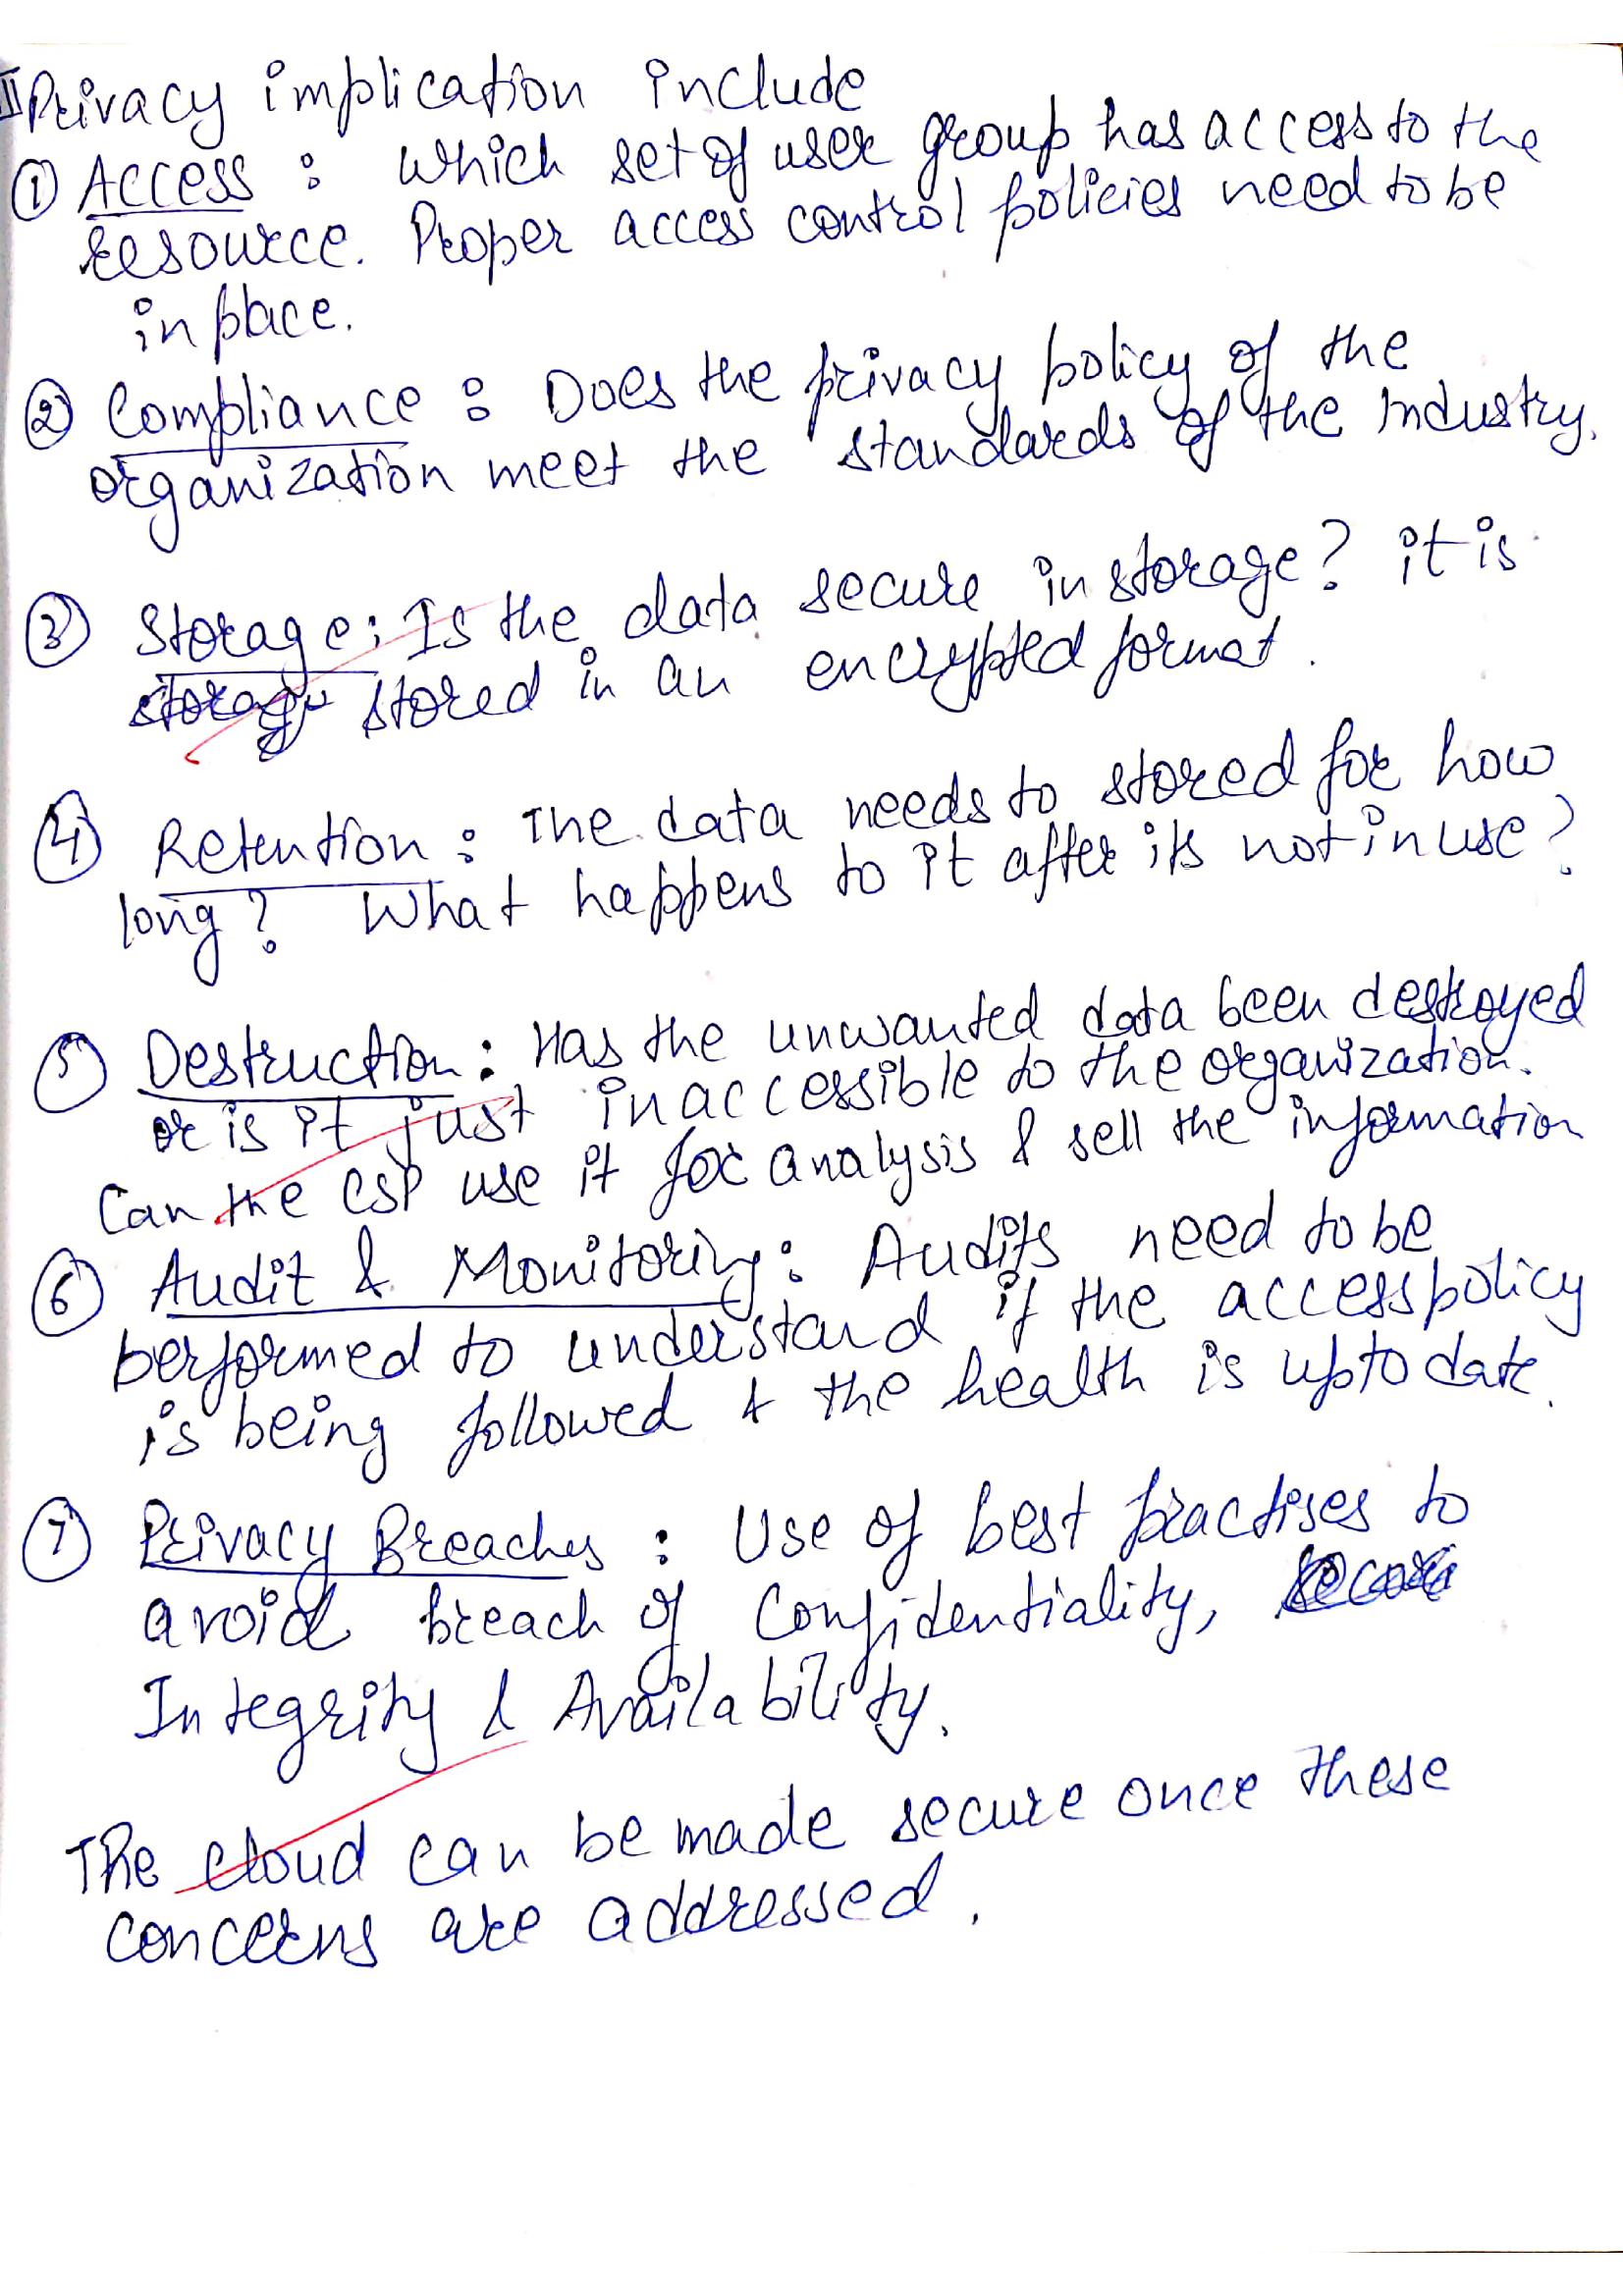 II Privacy implication include
① Access : Which set of user group has access to the
resource. Proper access control policies need to be
in place.
② Compliance : Does the privacy policy of the
organization meet the standards of the Industry.
③ Storage : Is the data secure in storage? it is
storage stored in an encrypted format.
④ Retention : The data needs to stored for how
long? What happens to it after its not in use?
⑤ Destruction : Has the unwanted data been destroyed
or is it just inaccessible to the organization.
Can the CSP use it for analysis & sell the information
⑥ Audit & Monitoring : Audits need to be
performed to understand if the access policy
is being followed & the health is upto date.
⑦ Privacy Breaches : Use of best practises to
avoid breach of Confidentiality,
Integrity & Availability.
The cloud can be made secure once these
concerns are addressed.